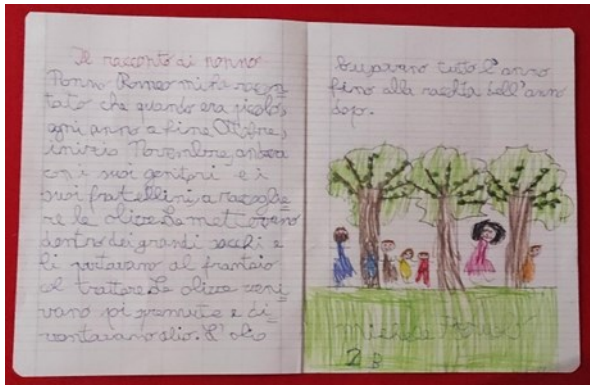 Il racconto di nonno
Nonno Romeo mi ha racon=
tato che quando era picolo,
ogni anno a fine Ottobre,
inizio Novembre, andava
con i suoi genitori e i
suoi fratellini, a raccoglie=
re le olive. Le mettevano
dentro dei grandi sacchi e
li portavano al frantoio
col trattore. Le olive veni=
vano poi spremute e di=
ventavano olio. L'olio
tutto l'anno
fino alla raccolta dell'anno
dopo.
Michele
2 B